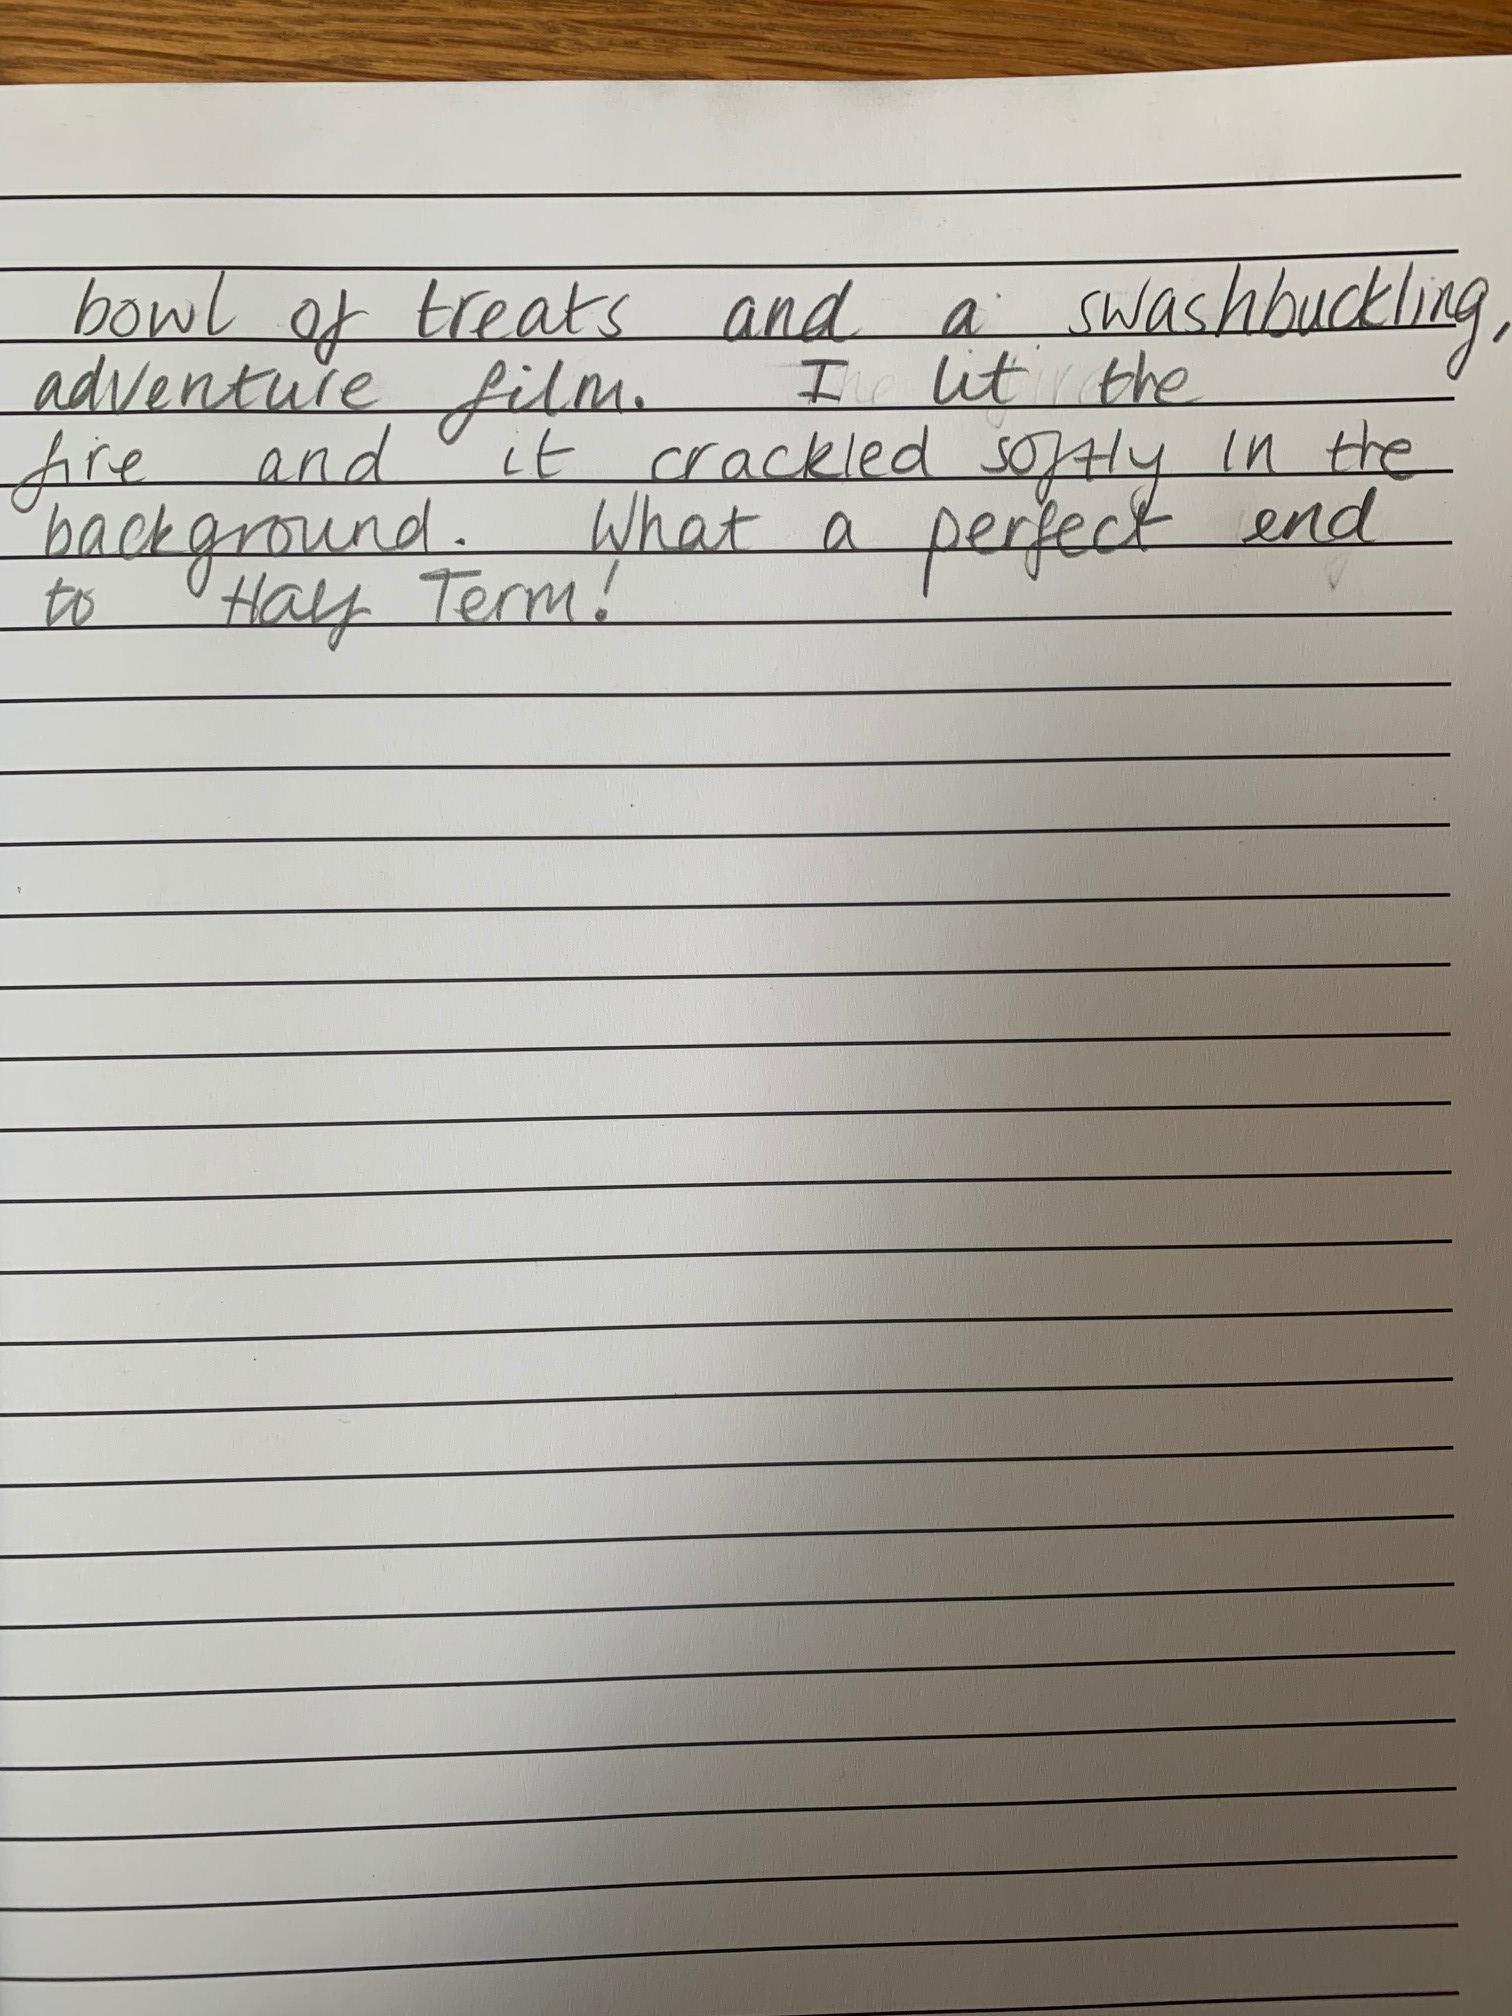 bowl of treats and a swashbuckling,
adventure film. I lit the
fire and it crackled softly in the
background. What a perfect end
to Half Term!